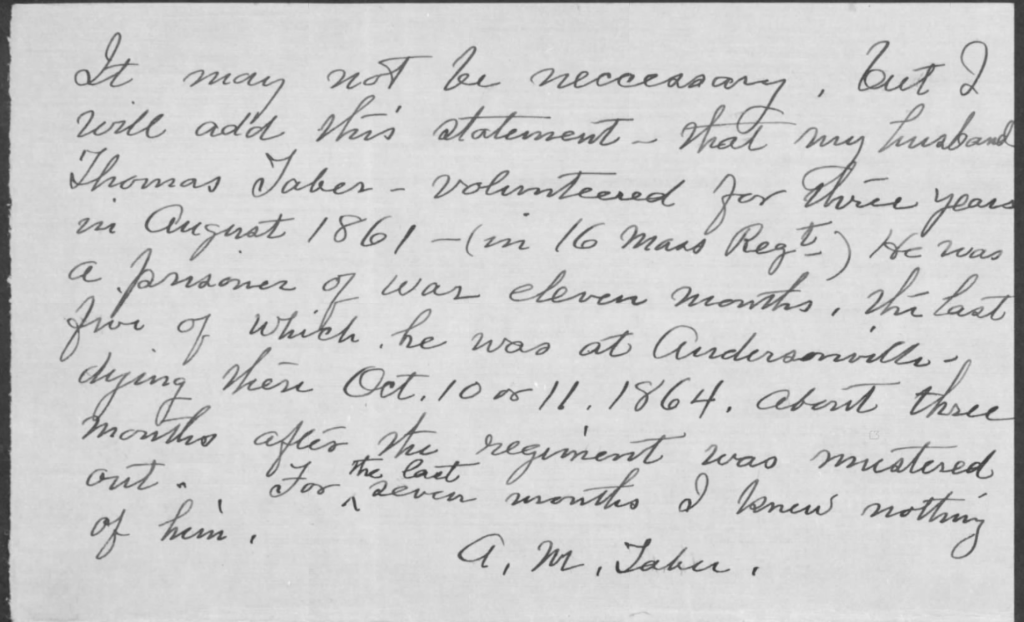 It may not be neccessary, but I
will add this statement - that my husband
Thomas Taber - volunteered for three years
in August 1861 - (in 16 Mass Regt) He was
a prisoner of war eleven months, the last
five of which he was at Andersonville -
dying there Oct. 10 or 11. 1864. about three
months after the regiment was mustered
out. For the last seven months I knew nothing
of him.
A. M. Taber.